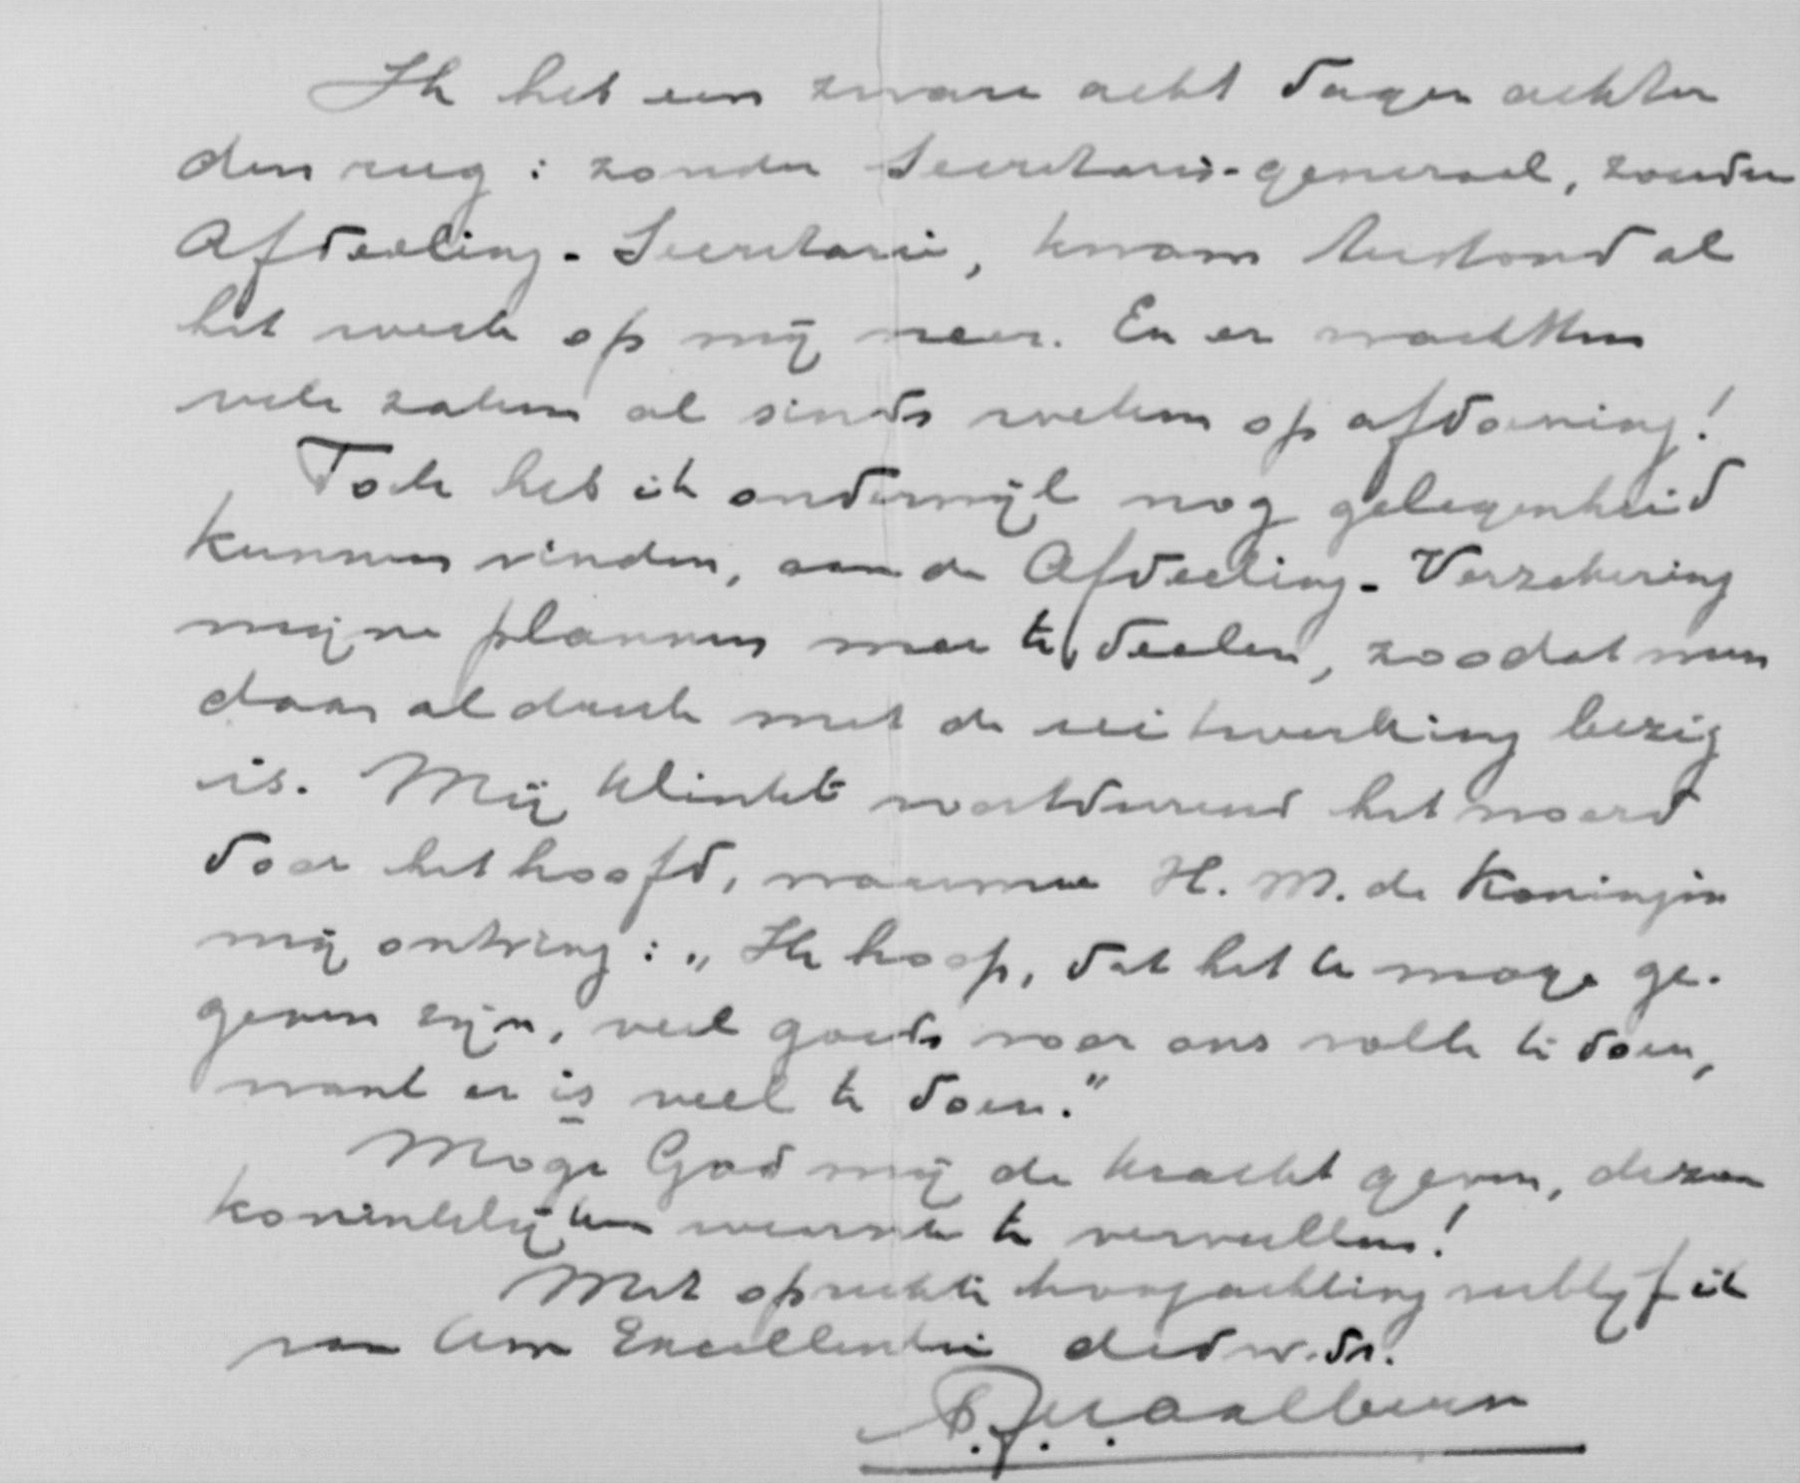 Ik heb een zware acht dagen achter
den rug: zonder Secretaris-generaal, zonder
Afdeeling-Secretarie, kwam terstond al
het werk op mij neer. En er wachtten
vele zaken al sinds weken op afdoening!
Toch heb ik onderwijl nog gelegenheid
kunnen vinden, aan de Afdeeling-Verzekering
mijne plannen mee te deelen, zoodat men
daar al druk met de uitwerking bezig
is. Mij klinkt voortdurend het woord
door het hoofd, waarmee H. M. de Koningin
mij ontving: „Ik hoop, dat het U moge ge-
geven zijn, veel goeds voor ons volk te doen,
want er is veel te doen."
Moge God mij de kracht geven, dezen
koninklijken wensch te vervullen!
Met oprechte hoogachting verblijf ik
van Uwe Excellentie dedw. dr.
Aalberse